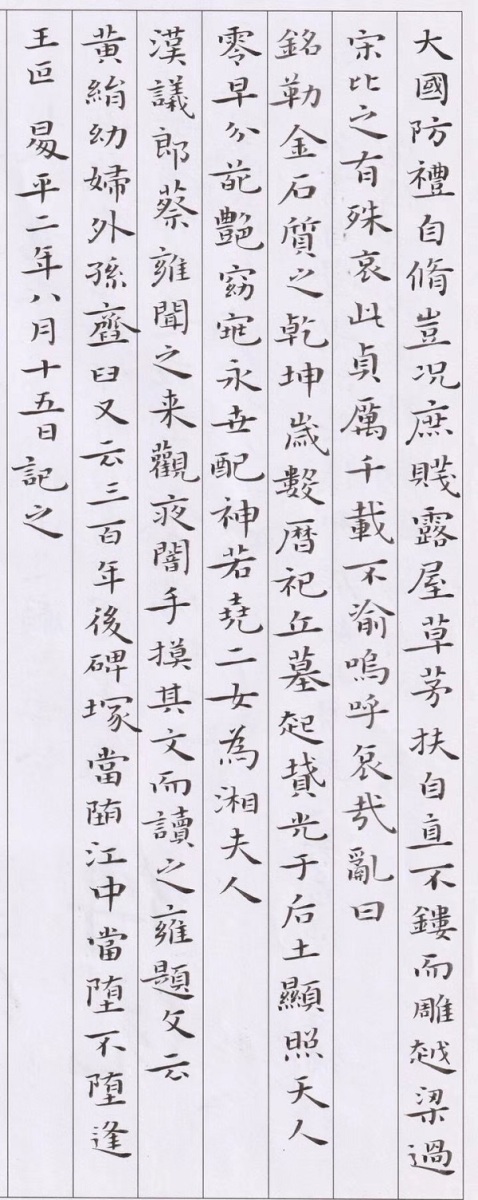 大國防禮自脩豈况庶賤露屋草茅扶自直不鏤而雕越梁過
宋比之有殊哀此貞厲千載不渝嗚呼哀㦲亂曰
銘勒金石質之乾坤歲數曆祀丘墓起墳光于后土顯照天人
零早分葩艷窈窕永世配神若堯二女為湘夫人
漢議郎蔡雍聞之来觀夜闇手摸其文而讀之雍題文云
黃絹幼婦外孫齏臼又云三百年後碑塚當堕江中當堕不堕逢
王叵 昜平二年八月十五日記之